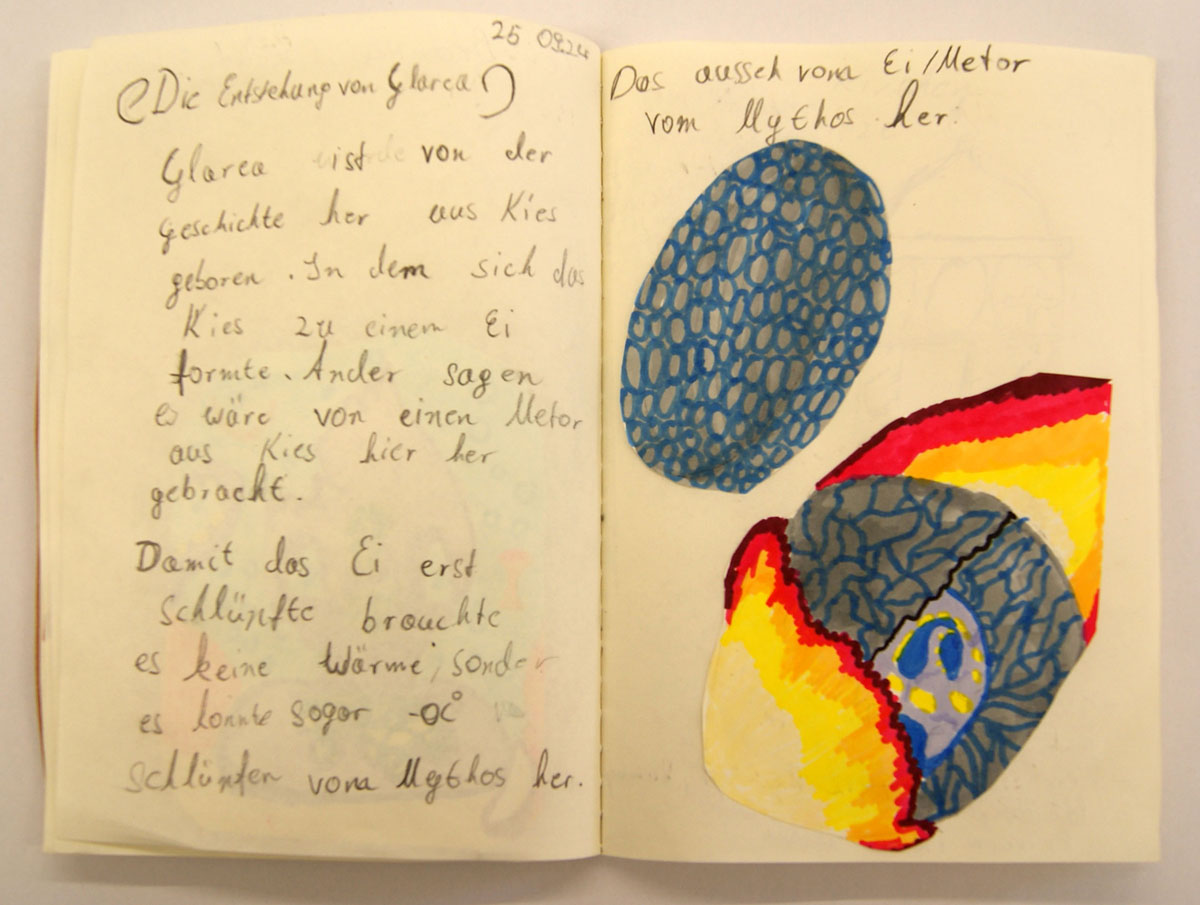 25 09.24
(Die Entstehung von Glarea)
Glarea ist von der
geschichte her aus Kies
geboren. In dem sich das
Kies zu einem Ei
formte. Ander sagen
es wäre von einen Metor
aus Kies hier her
gebracht.
Damit das Ei erst
Schlüpfte brauchte
es keine Wärme, sonder
es konnte sogar -0C°
schlüpfen vom Mythos her.
Das ausseh vom Ei/Metor
vom Mythos her.